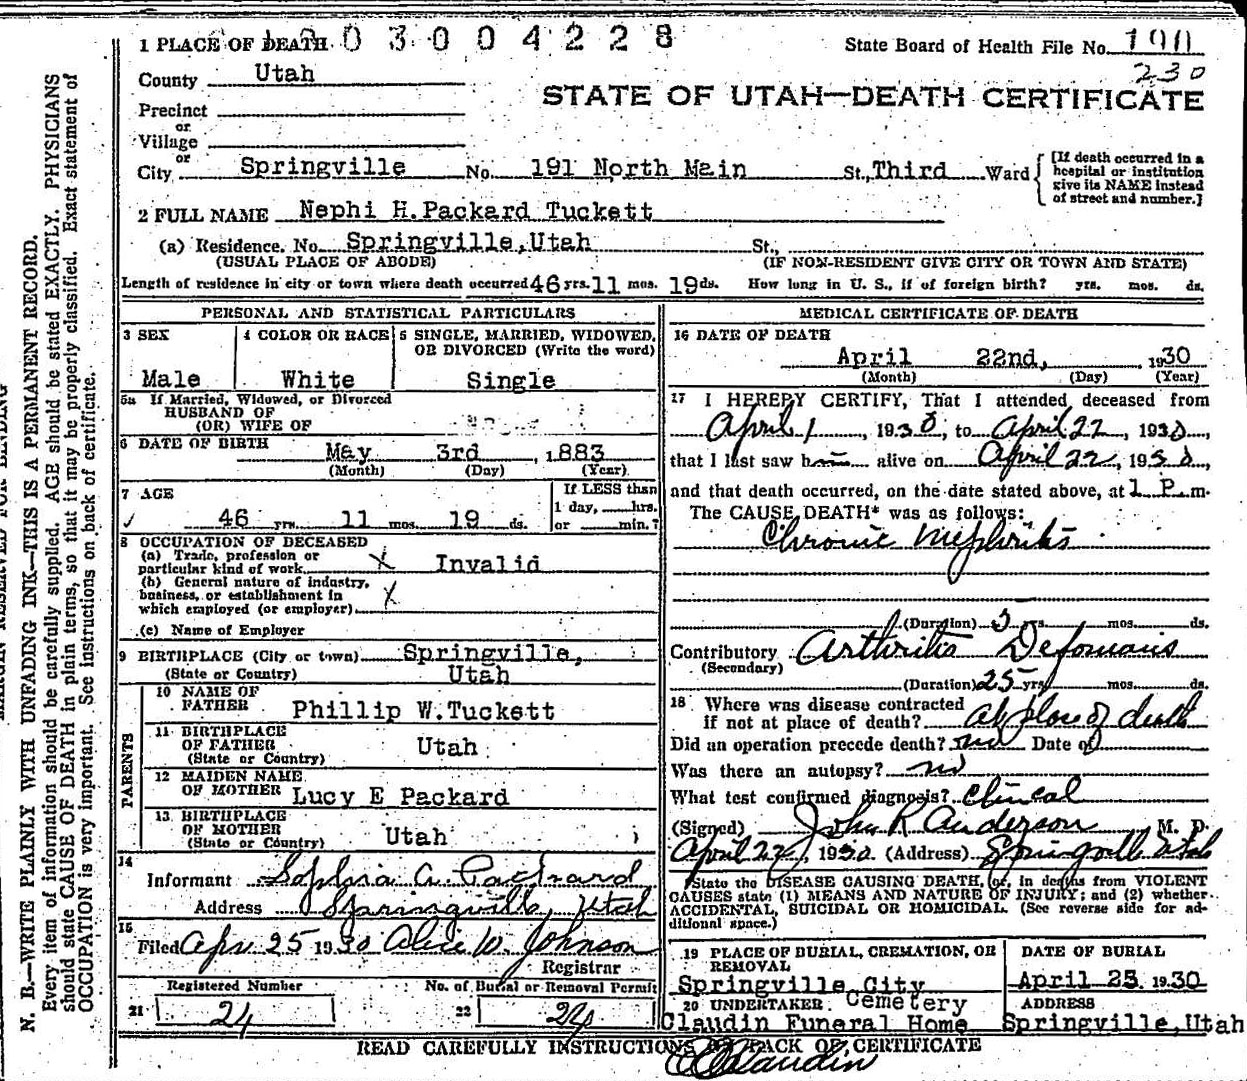 N. B.—WRITE PLAINLY WITH UNFADING INK—THIS IS A PERMANENT RECORD.
Every item of information should be carefully supplied. AGE should be stated EXACTLY. PHYSICIANS
should state CAUSE OF DEATH in plain terms, so that it may be properly classified. Exact statement of
OCCUPATION is very important. See instructions on back of certificate.
1 PLACE OF DEATH 0 3 0 0 4 2 2 8 State Board of Health File No. 190
230
County Utah
STATE OF UTAH—DEATH CERTIFICATE
Precinct
or
Village
or
City Springville No. 191 North Main St., Third Ward
[If death occurred in a
hospital or institution
give its NAME instead
of street and number.]
2 FULL NAME Nephi H.Packard Tuckett
(a) Residence. No. Springville,Utah St.,
(USUAL PLACE OF ABODE) (IF NON-RESIDENT GIVE CITY OR TOWN AND STATE)
Length of residence in city or town where death occurred 46 yrs. 11 mos. 19 ds. How long in U. S., if of foreign birth? yrs. mos. ds.
PERSONAL AND STATISTICAL PARTICULARS
3 SEX 4 COLOR OR RACE 5 SINGLE, MARRIED, WIDOWED,
OR DIVORCED (Write the word)
Male White Single
5a If Married, Widowed, or Divorced
HUSBAND OF
(OR) WIFE OF
6 DATE OF BIRTH May 3rd , 1883
(Month) (Day) (Year)
7 AGE If LESS than
1 day, hrs.
46 yrs. 11 mos. 19 ds. or min.?
8 OCCUPATION OF DECEASED
(a) Trade, profession or
particular kind of work X Invalid
(b) General nature of industry,
business, or establishment in X
which employed (or employer)
(c) Name of Employer
9 BIRTHPLACE (City or town) Springville,
(State or Country) Utah
PARENTS
10 NAME OF
FATHER Phillip W.Tuckett
11 BIRTHPLACE
OF FATHER Utah
(State or Country)
12 MAIDEN NAME
OF MOTHER Lucy E Packard
13 BIRTHPLACE
OF MOTHER Utah
(State or Country)
14
Informant Sophia A. Packard
Address Springville, Utah
15
Filed Apr. 25 1930 Alice W. Johnson
Registrar
Registered Number No. of Burial or Removal Permit
21 24 22 24
MEDICAL CERTIFICATE OF DEATH
16 DATE OF DEATH
April 22nd, 1930
(Month) (Day) (Year)
17 I HEREBY CERTIFY, That I attended deceased from
April 1, 1930, to April 22, 1930,
that I last saw him alive on April 22, 1930,
and that death occurred, on the date stated above, at 1 P.m.
The CAUSE DEATH* was as follows:
Chronic Nephritis
(Duration) 5 yrs. mos. ds.
Contributory Arthritis Deformans
(Secondary)
(Duration) 25 yrs. mos. ds.
18 Where was disease contracted
if not at place of death? at place of death
Did an operation precede death? no Date of
Was there an autopsy? no
What test confirmed diagnosis? Clinical
(Signed) John R Anderson M. D.
April 22, 1930. (Address) Springville Utah
*State the DISEASE CAUSING DEATH, or, in deaths from VIOLENT
CAUSES state (1) MEANS AND NATURE OF INJURY; and (2) whether
ACCIDENTAL, SUICIDAL OR HOMICIDAL. (See reverse side for ad-
ditional space.)
19 PLACE OF BURIAL, CREMATION, OR
REMOVAL
Springville City
Cemetery
DATE OF BURIAL
April 25 1930
20 UNDERTAKER
Claudin Funeral Home
ADDRESS
Springville,Utah
READ CAREFULLY INSTRUCTIONS ON BACK OF CERTIFICATE
Claudin